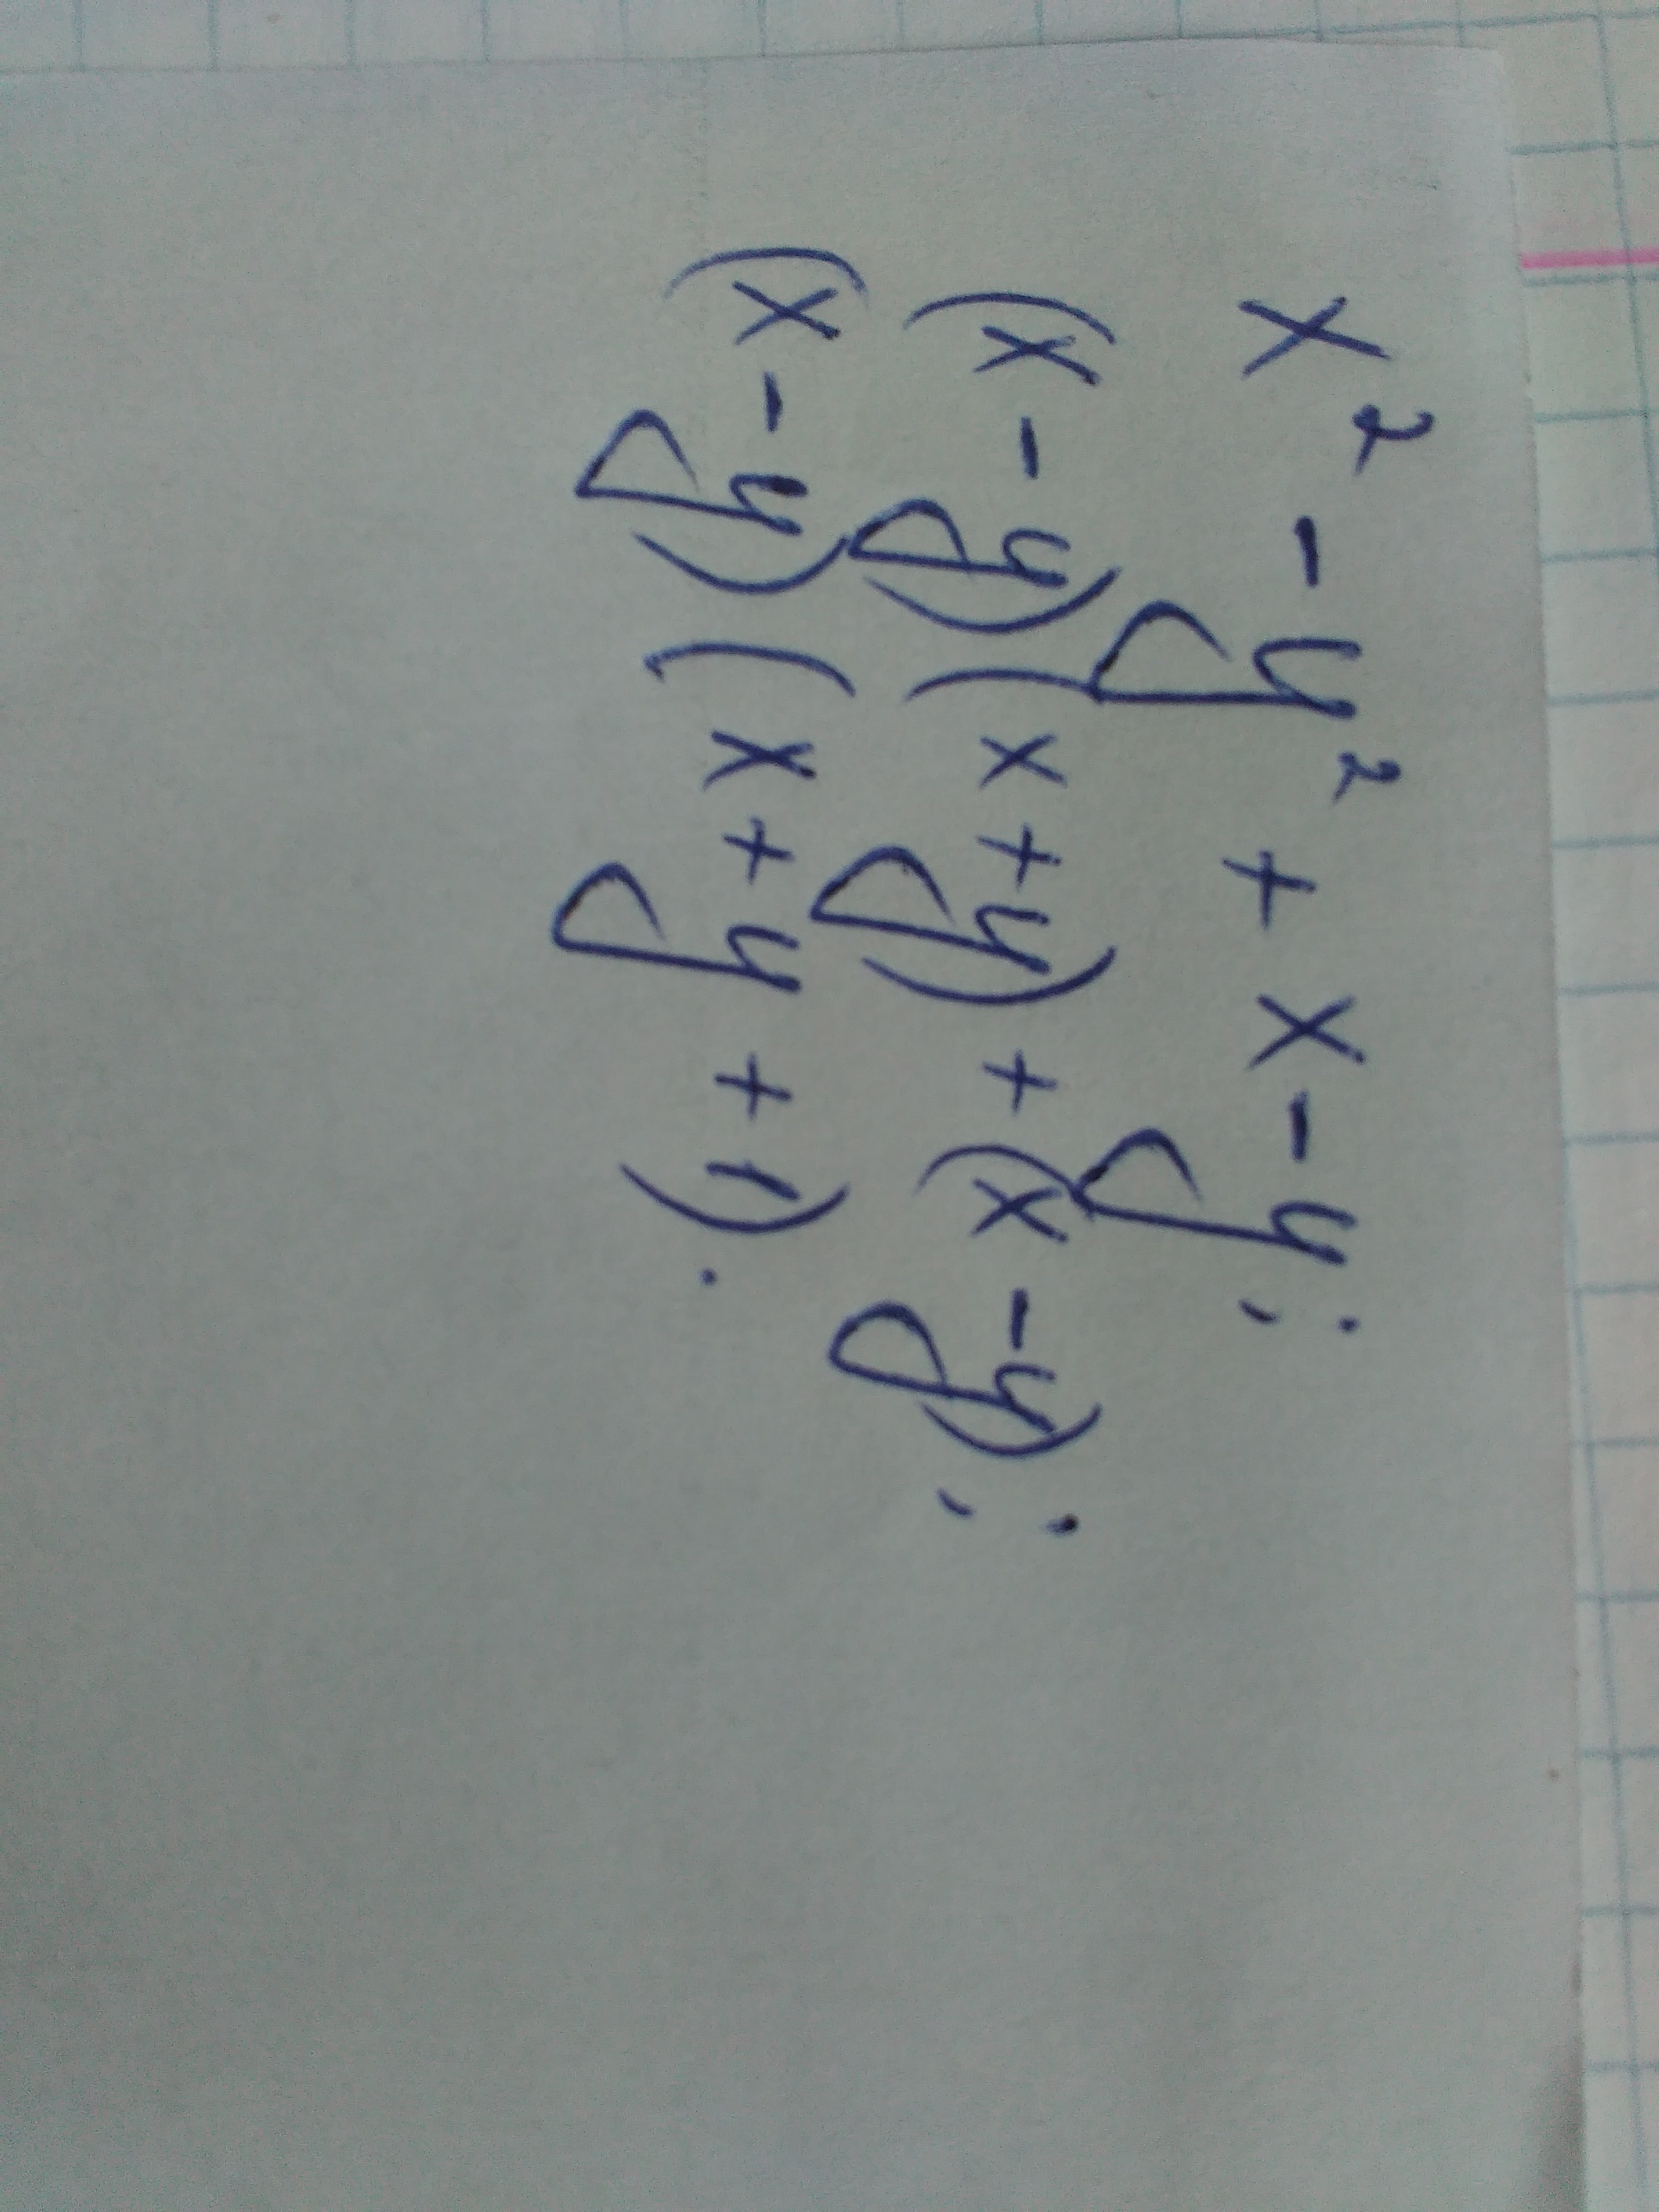 x² - y² + x - y;
(x - y)(x + y) + (x - y);
(x - y)(x + y + 1).